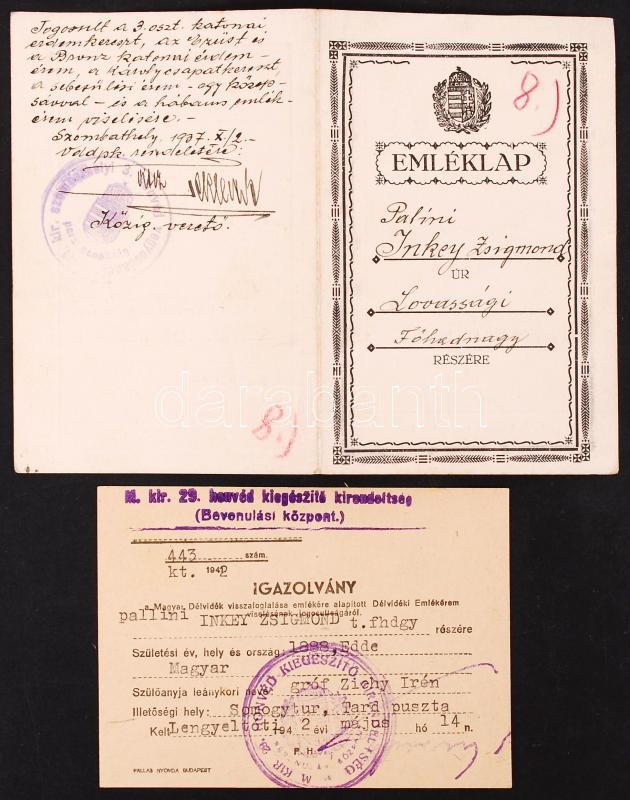 Jogosult a 3. oszt. katonai
érdemkereszt, az Ezüst és
a Bronz katonai érdem-
érem, a Károly csapatkereszt,
a sebesülési érem - egy közép-
sávval - és a háborús emlék-
érem viselésére.
Szombathely, 1937. X/2.
rendeletére:
Közig. vezető.
8.)
8.)
EMLÉKLAP
Palini
Inkey Zsigmond
ÚR
Lovassági
Főhadnagy
RÉSZÉRE
darabanth
M. kir. 29. honvéd kiegészitő kirendeltség
(Bevonulási központ.)
443 szám.
kt. 1942
IGAZOLVÁNY
a Magyar Délvidék visszafoglalása emlékére alapított Délvidéki Emlékérem
viselésének jogosultságáról.
pallini INKEY ZSIGMOND t.fhdgy részére
Születési év, hely és ország: 1888, Edde
Magyar
Szülőanyja leánykori neve gróf Zichy Irén
Illetőségi hely: Somogytur, Tard puszta
Kelt Lengyeltóti 194 2 évi május hó 14 n.
P. H.
PALLAS NYOMDA BUDAPEST